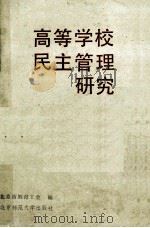 高等学校
民主管理
研究
北京市教育工会 编
北京师范大学出版社